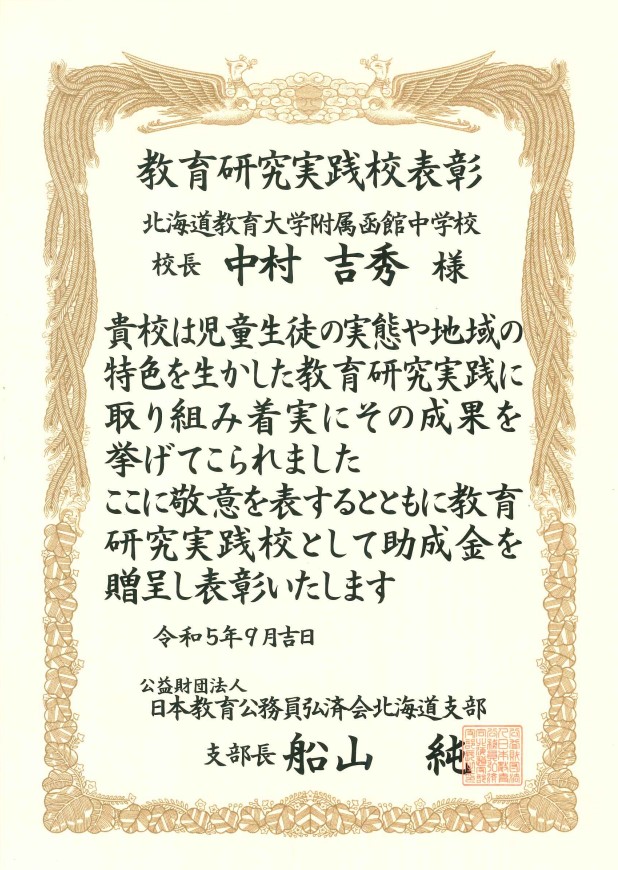 教育研究実践校表彰
北海道教育大学附属函館中学校
校長 中村 吉秀 様
貴校は児童生徒の実態や地域の
特色を生かした教育研究実践に
取り組み着実にその成果を
挙げてこられました
ここに敬意を表するとともに教育
研究実践校として助成金を
贈呈し表彰いたします
令和5年9月吉日
公益財団法人
日本教育公務員弘済会北海道支部
支部長 船山 純